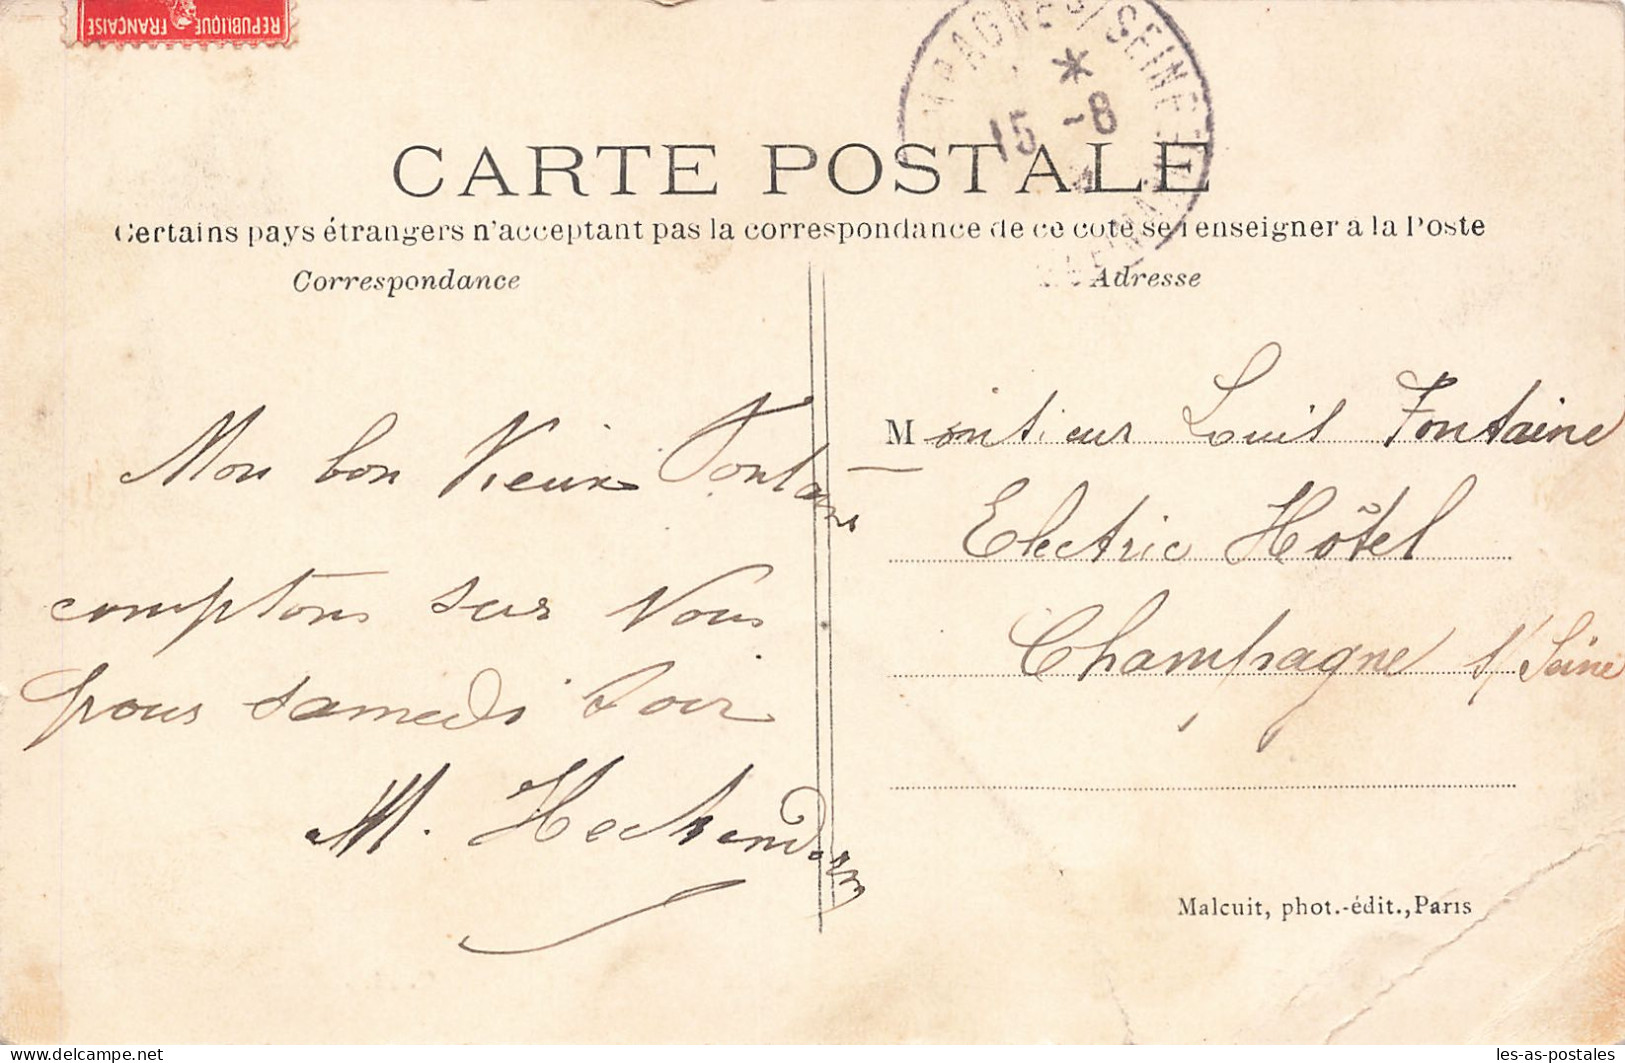 REPUBLIQUE FRANÇAISE
SEINE
15 -8
CARTE POSTALE
Certains pays étrangers n'acceptant pas la correspondance de ce coté se renseigner a la Poste
Correspondance
Adresse
Mon bon Vieux Fontaine
comptons sur Vous
pour samedi soir
M.
Monsieur Louis Fontaine
Electric Hôtel
Champagne s/ Seine
Malcuit, phot.-édit., Paris
les-as-postales
delcampe.net